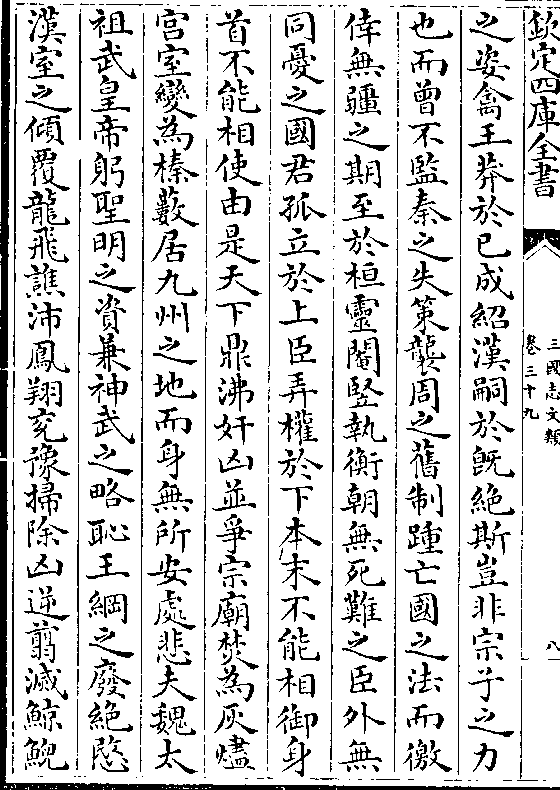 欽定四庫全書
三國志文類
卷三十九
八
之姿禽王莽於已成紹漢嗣於旣絶斯豈非宗子之力
也而曾不監秦之失策襲周之舊制踵亡國之法而徼
倖無疆之期至於桓靈閹竪執衡朝無死難之臣外無
同憂之國君孤立於上臣弄權於下本末不能相御身
首不能相使由是天下鼎沸奸凶並爭宗廟焚為灰燼
宫室變為榛藪居九州之地而身無所安處悲夫魏太
祖武皇帝躬聖明之資兼神武之略恥王綱之廢絶愍
漢室之傾覆龍飛譙沛鳳翔兖豫掃除凶逆翦滅鯨鯢